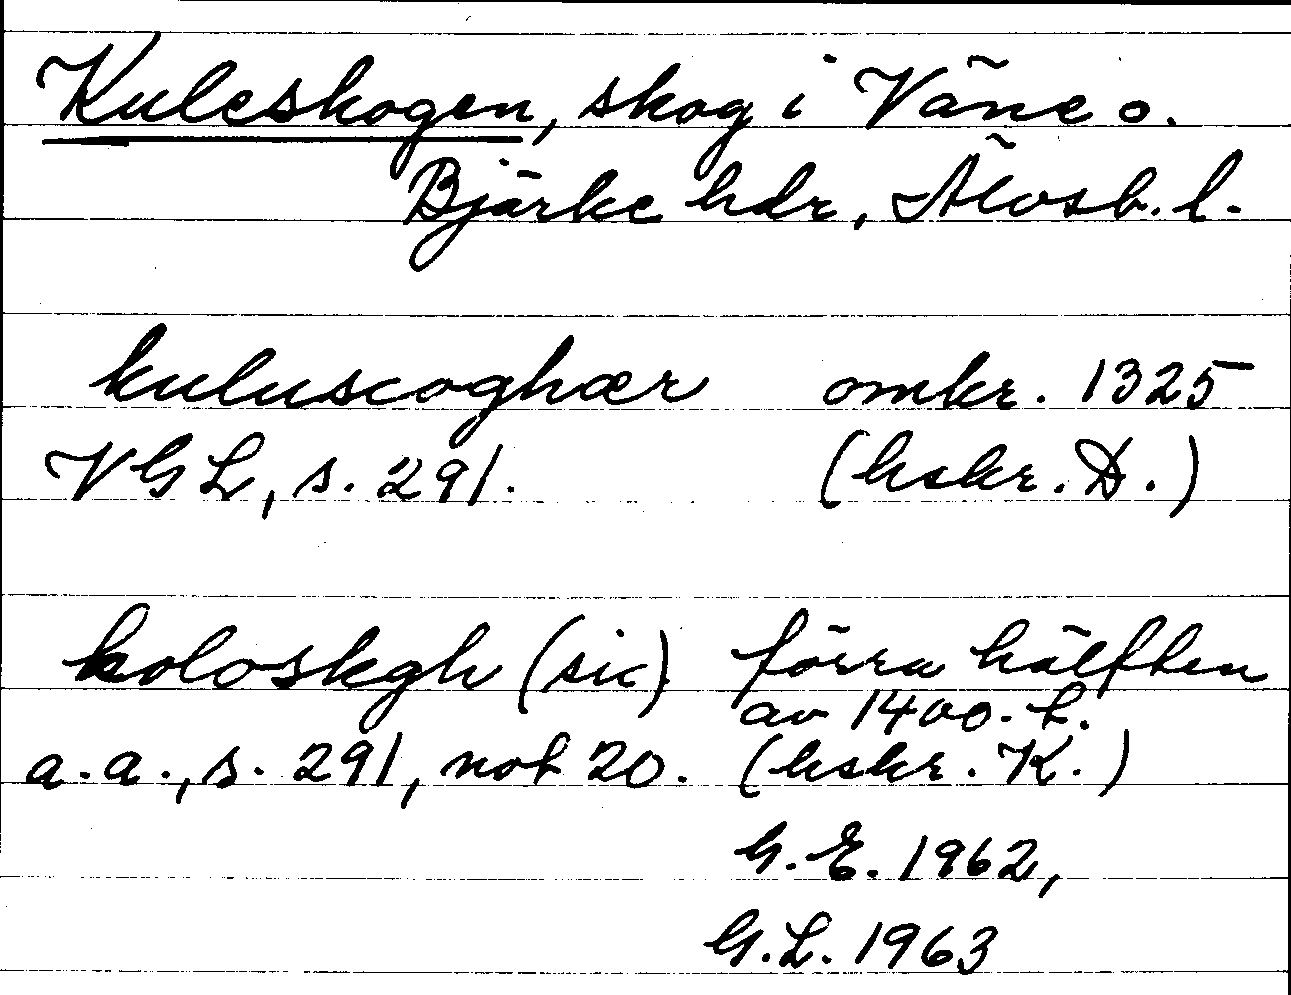 Kuleskogen, skog i Väne o.
Bjärke hdr, Älvsb. l.
kuluscoghær omkr. 1325
VGL, s. 291. (hskr. D.)
koloskgh (sic) förra hälften
av 1400-t.
a.a., s. 291, not 20. (hskr. K.)
G.E. 1962,
G.L. 1963